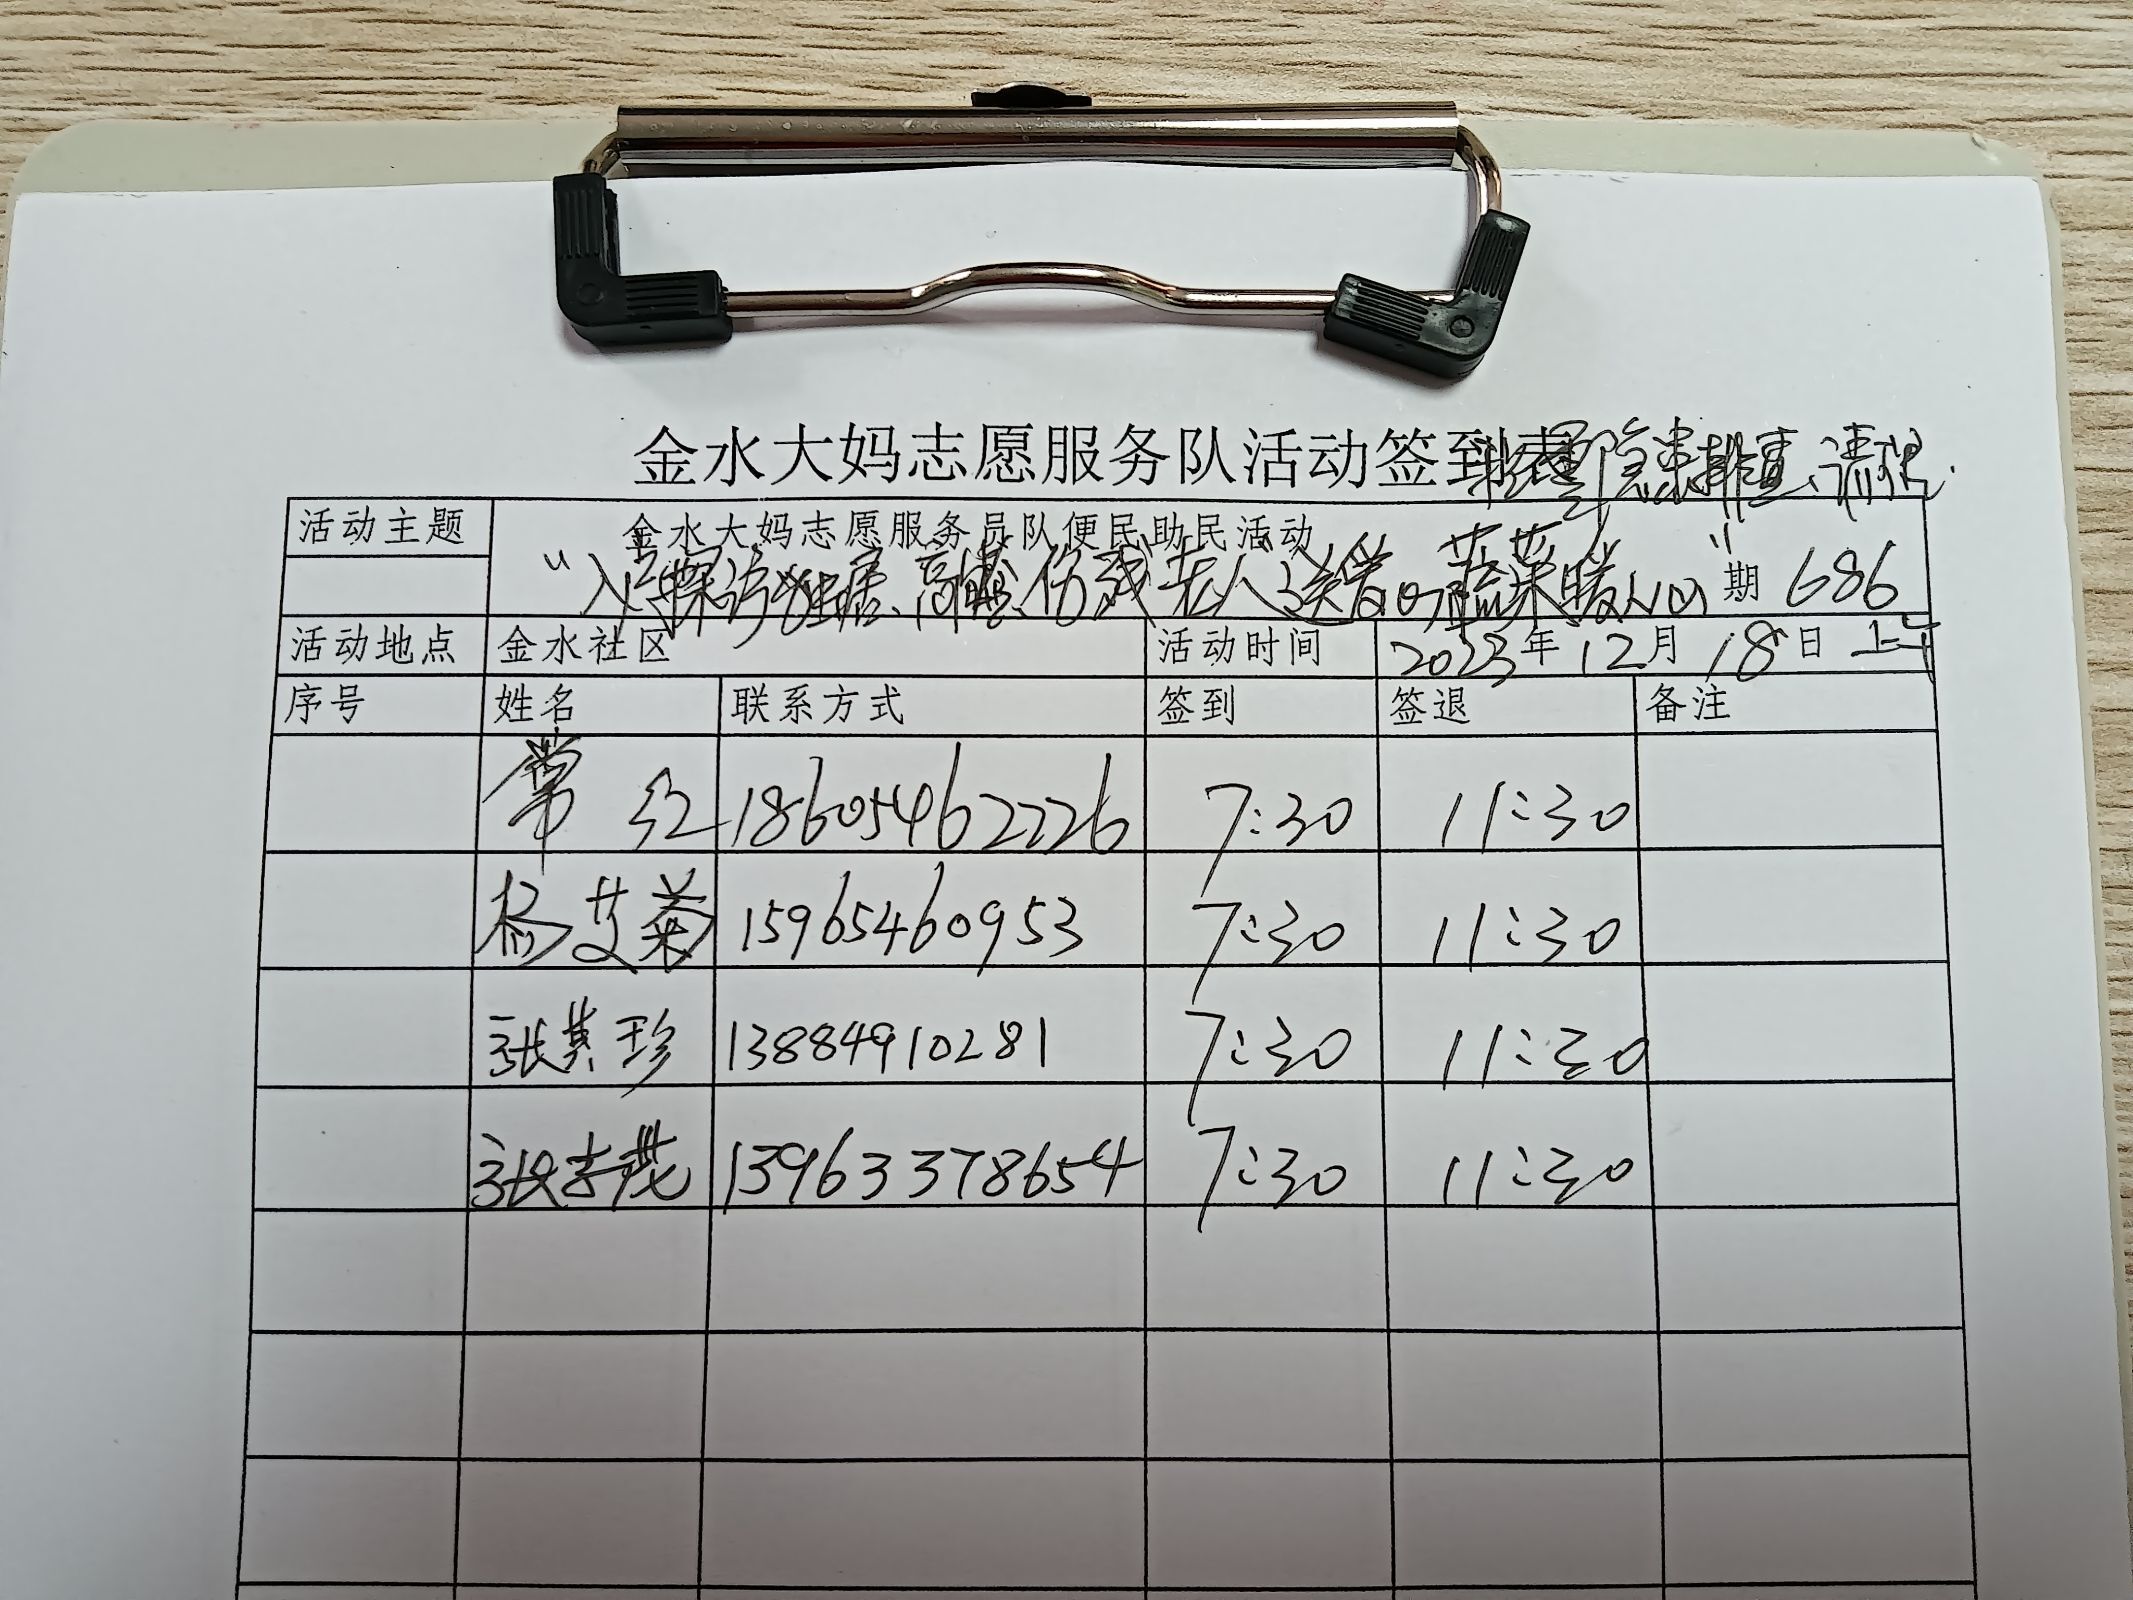 金水大妈志愿服务队活动签到表
隐患排查、清理.
活动主题 金水大妈志愿服务员队便民助民活动
“入户探访独居、高龄、伤残老人送爱心蔬菜暖人心” 期 686
活动地点 金水社区 活动时间 2023年12月18日 上午
序号 姓名 联系方式 签到 签退 备注
常红 18605462226 7:30 11:30
杨艾菊 15965460953 7:30 11:30
张其珍 13884910281 7:30 11:30
张 13963378654 7:30 11:30